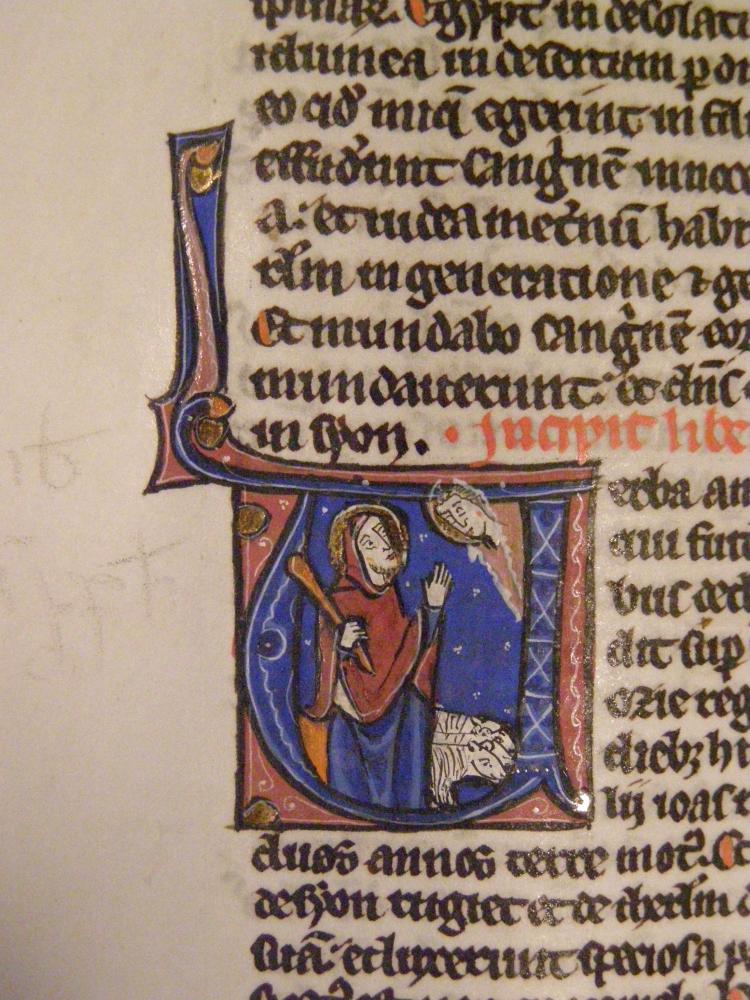 Egypt in desolati
idumea in desertum p
eo qd' iniq egerint in fili
effuderunt sangne innoce
a: et iudea in etnu habi
rlm in generatione ⁊ ge
Et mundabo sangne eor
mundauerunt: et dns
in syon. Incipit libe
erba am
qui fuit
bus
dit sup
ozie reg
dieb; hi
lij ioas
duos annos terre mot. Et
de syon rugiet et de ihrlm
suā: et luxerunt speciosa p